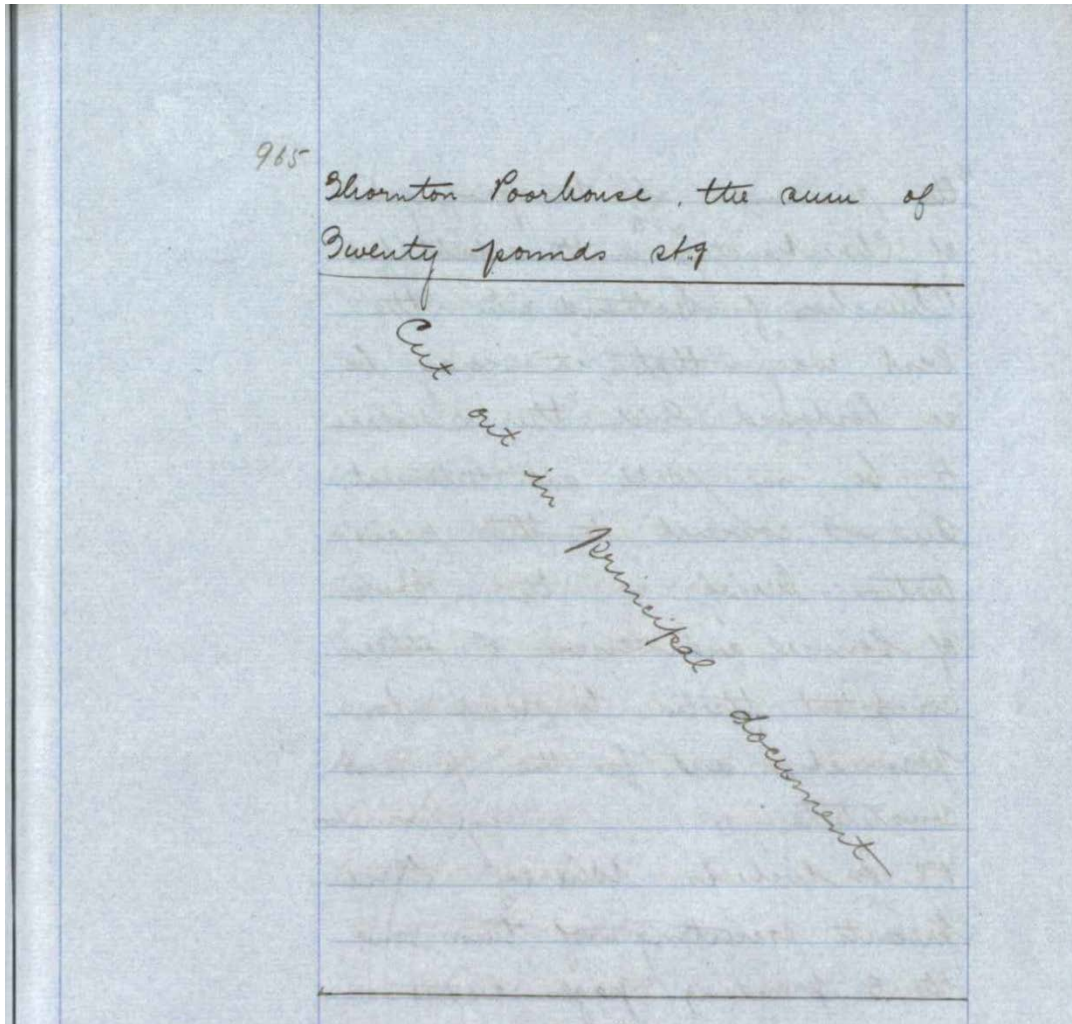 965
Thornton Poorhouse, the sum of
Twenty pounds stg
Cut out in principal document